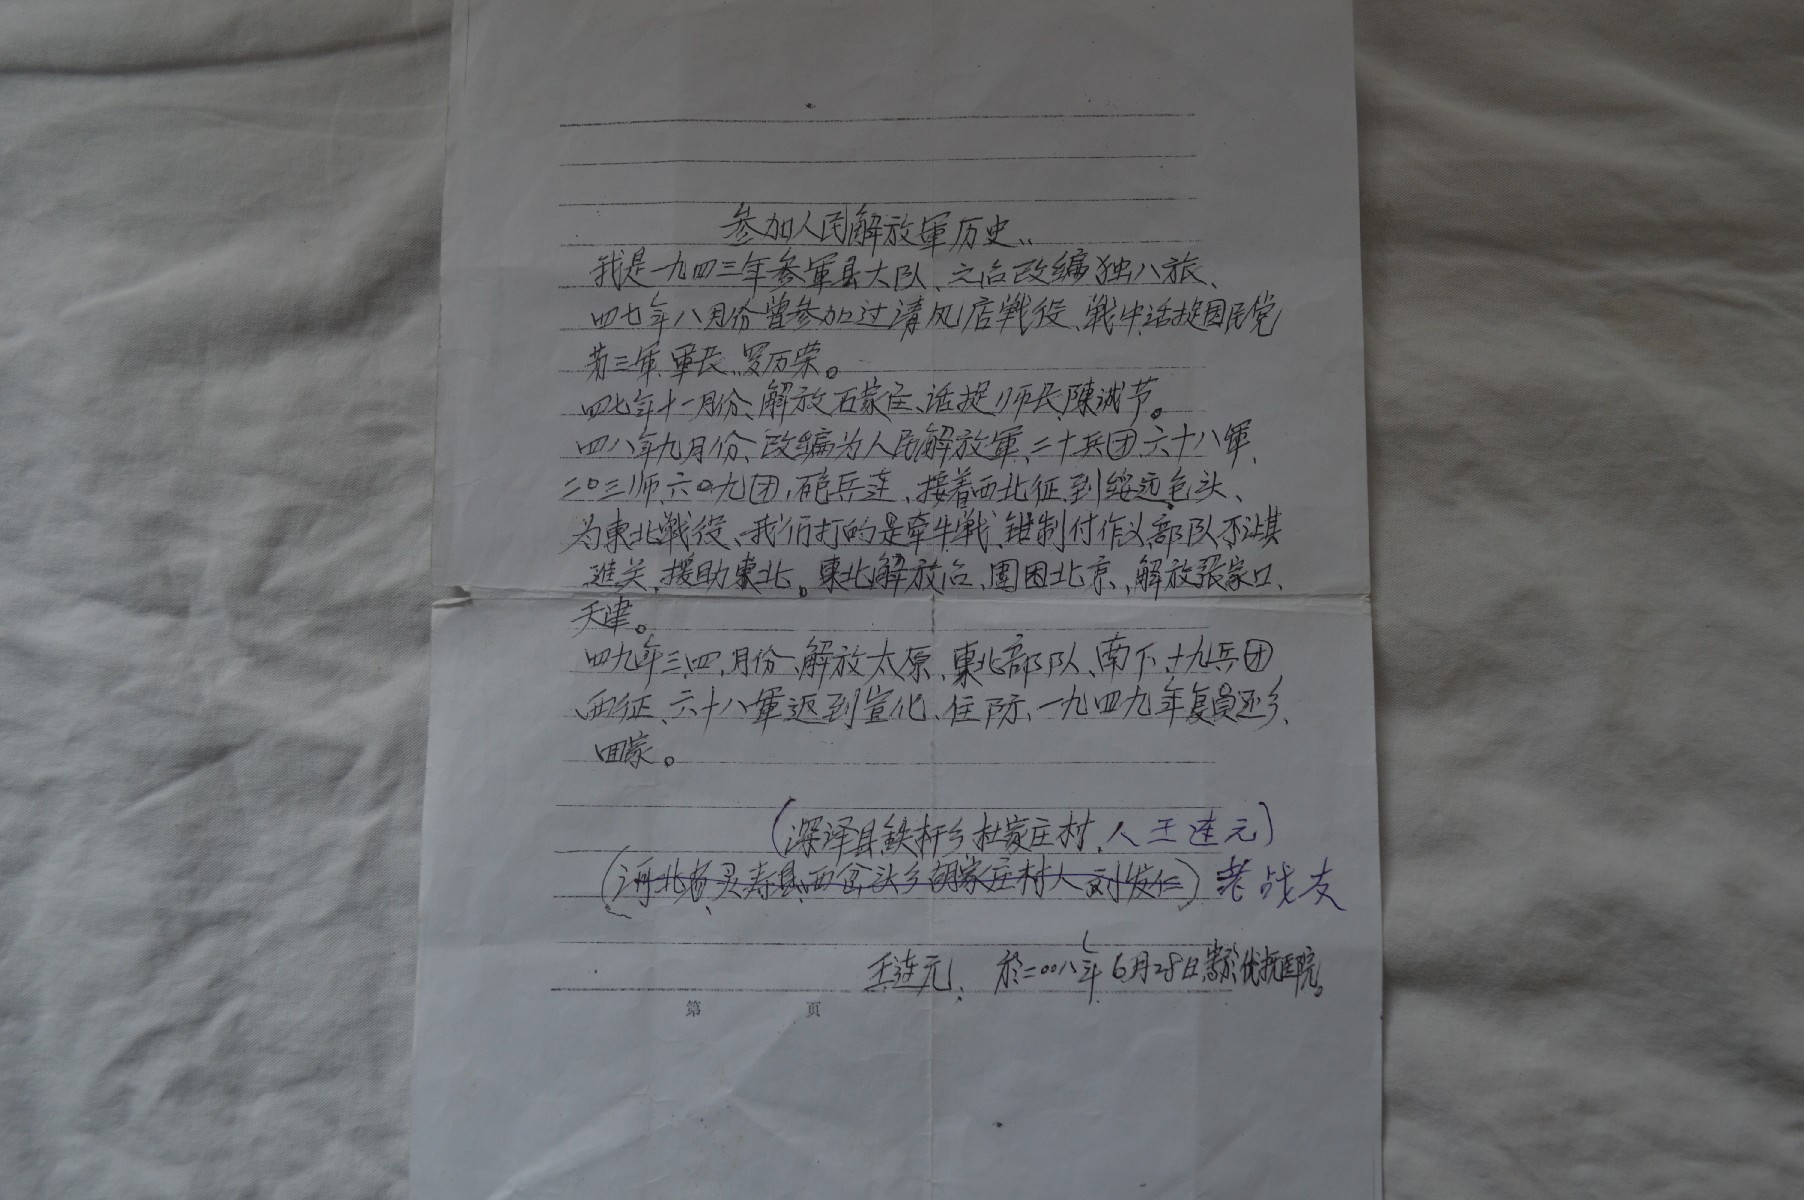 参加人民解放軍历史、、
我是一九四三年参軍县大队、之后改编独八旅、
四七年八月份曾参加过清风店戦役、戦中活捉国民党
苐三軍軍长、罗历荣。
四七年十一月份、解放石家庄、活捉师长陳诚节。
四八年九月份、改编为人民解放軍、二十兵团六十八軍、
二〇三师六〇九团、砲兵连、接着西北征到绥远包头、
为東北戦役、我们打的是牵牛戦、钳制付作义部队不让其
進关、援助東北。東北解放后、围困北京、解放張家口、
天津。
四九年三、四、月份、解放太原、東北部队、南下、十九兵团
西征、六十八軍返到宣化、住防、一九四九年复員还乡、
回家。
(深译县鉄杆乡杜家庄村、人王连元)
(河北省灵寿县西岔头乡胡家庄村人刘发仁)老战友
王连元、於二〇〇八年6月28日 优抚医院。
第 页